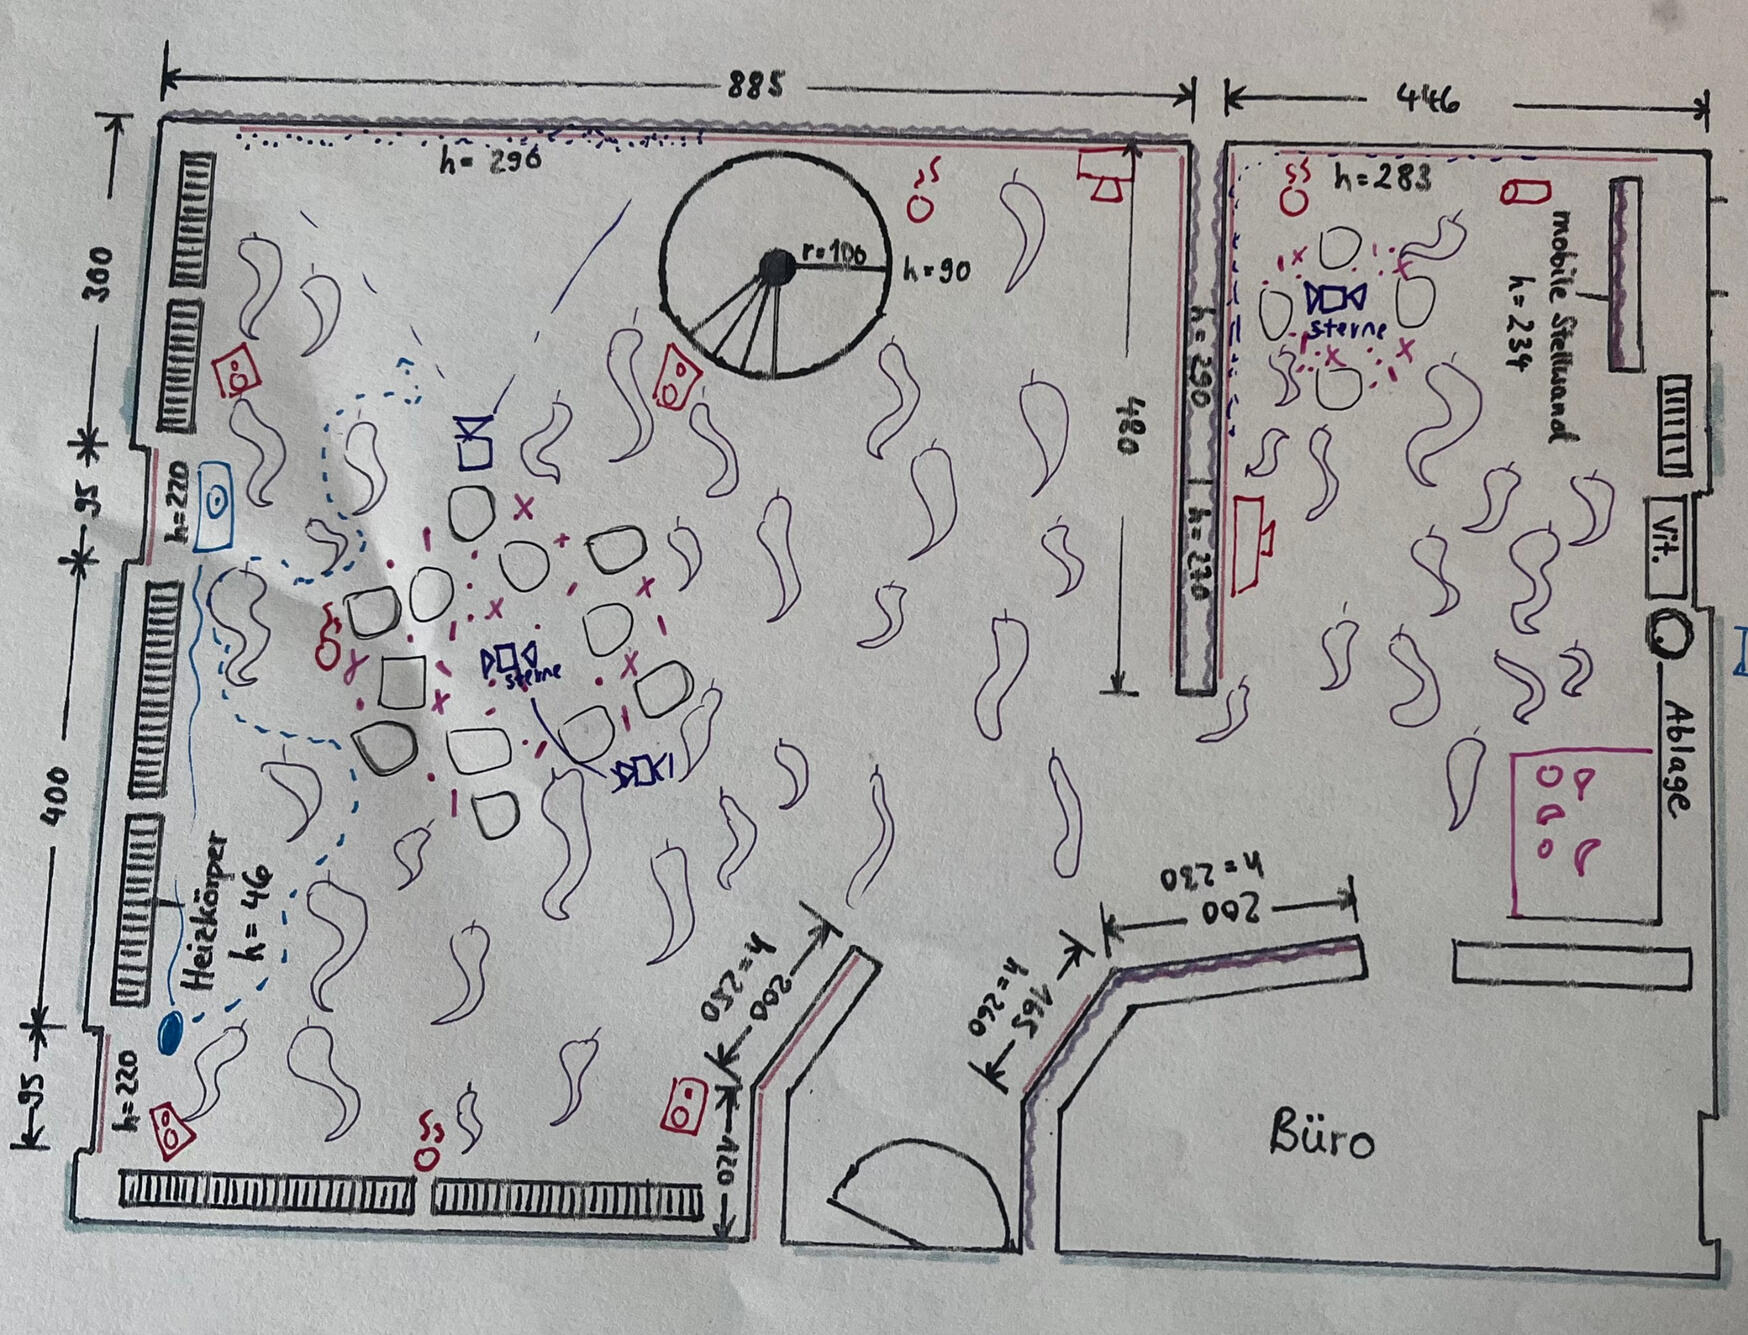 885
446
h= 296
h=283
r=106
h=90
300
mobile Stellwand
h=234
sterne
h=290
480
95
h=220
h=270
Vit.
sterne
Ablage
400
Heizkörper
h=46
200
h=230
200
h=250
165
h=260
95
h=220
120
Büro